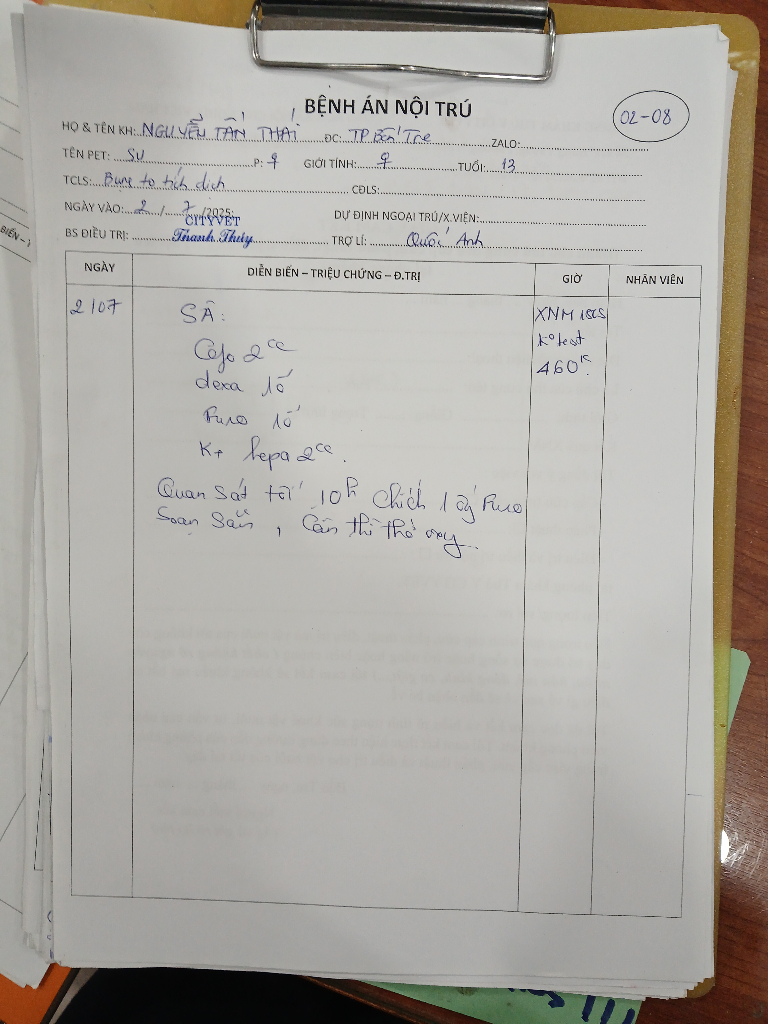 BỆNH ÁN NỘI TRÚ
02-08
HỌ & TÊN KH: NGUYỄN TẤN THÁI ĐC: TP Bến Tre ZALO:
TÊN PET: SU P: 9 GIỚI TÍNH: ♀ TUỔI: 13
TCLS: Bụng to tích dịch CĐLS:
NGÀY VÀO: 2 / 7 /2025 DỰ ĐỊNH NGOẠI TRÚ/X.VIỆN:
CITYVET
BS ĐIỀU TRỊ: Thanh Thúy TRỢ LÍ: Quốc Anh
NGÀY DIỄN BIẾN – TRIỆU CHỨNG – Đ.TRỊ GIỜ NHÂN VIÊN
2/07 SÂ: XNM 18CS
Cefo 2cc Ko test
dexa 1ố 460K
Furo 1ố
K+ hepa 2cc.
Quan sát tối 10h chích 1 ống Furo
Soạn sẵn, Cần thì thở oxy